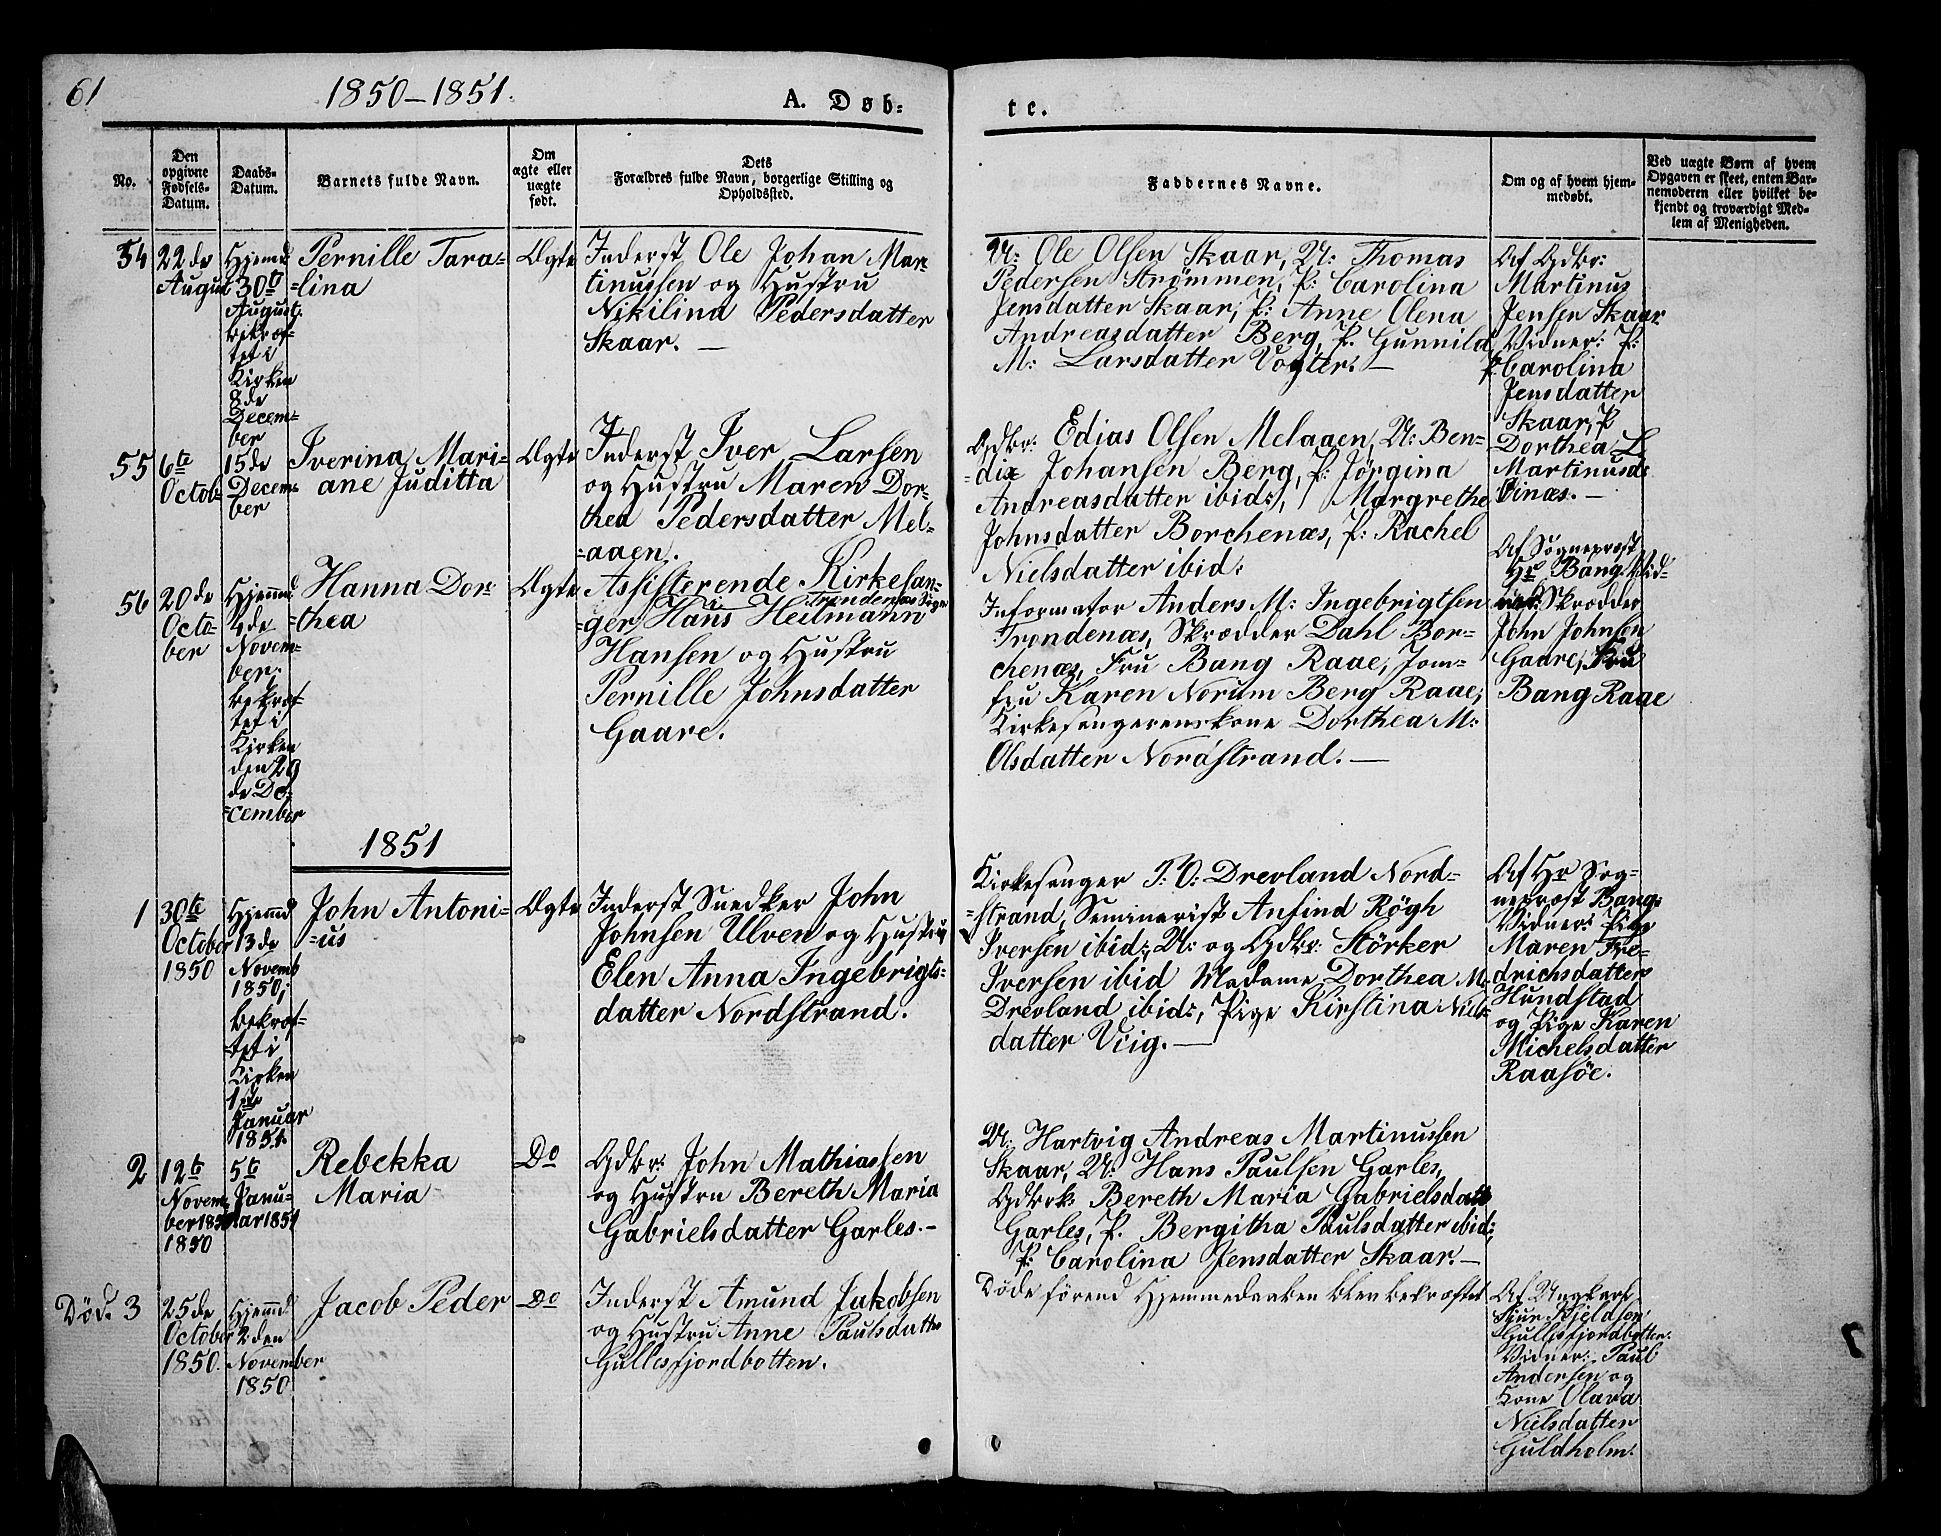 61
1850–1851.
A. Døb=
te.
No.
Den
opgivne
Fødsels-
Datum.
Daabs-
Datum.
Barnets fulde Navn.
Om
ægte eller
uægte
født.
Dets
Forældres fulde Navn, borgerlige Stilling og
Opholdssted.
Faddernes Navne.
Om og af hvem hjem-
medøbt.
Ved uægte Børn af hvem
Opgaven er skeet, enten Bar-
nemoderen eller hvilket be-
kjendt og troværdigt Med-
lem af Menigheden.
54
22de
August
Hjemd
30te
August;
bekræf-
tet i
Kirken
8de
Decem-
ber
Pernille Tara-
=lina
Ægte
Inderst Ole Johan Mar-
tinussen og Hustru
Nikilina Pedersdatter
Skaar. —
U: Ole Olsen Skaar, U: Thomas
Pedersen Strømmen, P: Carolina
Jensdatter Skaar, P: Anne Olena
Andreasdatter Berg, P. Gunnild
M: Larsdatter Vogter. —
Af Gdbr:
Martinus
Jensen Skaar
Vidner: P:
Carolina
Jensdatter
Skaar, P
Dorthea L.
Martinusd:
Vinæs. —
55
6te
Octob
15de
Decem-
ber
Iverina Mari-
ane Juditta
Ægte
Inderst Iver Larsen
og Hustru Maren Dor-
thea Pedersdatter Mel-
=aaen.
Gdbr: Edias Olsen Melaaen, U: Ben-
=dix Johansen Berg, P: Jørgina
Andreasdatter ibid:, Margrethe
Johnsdatter Borchenæs, P: Rachel
Nielsdatter ibid:
56
20de
Octo-
ber
Hjemd
4de
Novem-
ber;
bekræf-
tet i
Kirken
den 29
de De-
=cember
Hanna Dor-
=thea
Ægte
Assisterende Kirkesan-
=ger i Trondenæs Sogn
Hans Heitmann
Hansen og Hustru
Pernille Johnsdatter
Gaare.
Informator Anders M: Ingebrigtsen
Trondenæs, Skrædder Dahl Bor-
chenæs, Fru Bang Raae, Jom-
fru Karen Norum Berg Raae,
Kirkesangerenskone Dorthea M:
Olsdatter Nordstrand. —
Af Sognepræst
Hr Bang Vid-
Skrædder
John Johnsen
Gaare, Fru
Bang Raae
1851
1
30te
October
1850
Hjemd
13de
Novemb
1850;
bekræf-
tet i
Kirken
1ste
Januar
1851.
John Antoni-
=us
Ægte
Inderst Snedker John
Johnsen Ulven og Hustru
Elen Anna Ingebrigts-
datter Nordstrand.
Kirkesanger T: O: Drevland Nord-
=strand, Seminarist Anfind Røgh
Iversen ibid:, U: og Gdbr: Störker
Iversen ibid Madame Dorthea M:
Drevland ibid:, Pige Kirstina Niels-
datter Viig. —
Af Hr Sog-
nepræst Bang.
Vidner: Pige
Maren Fre-
drichsdatter
Hundstad
og Pige Karen
Michelsdatter
Raasöe.
2
12te
Novem-
ber
1850
5te
Janu-
ar 1851
Rebekka
Maria
Do
Gdbr: John Mathiassen
og Hustru Bereth Maria
Gabrielsdatter Garles. –
U: Hartvig Andreas Martinussen
Skaar, U: Hans Paulsen Garles,
Gdbrk: Bereth Maria Gabrielsdatt
Garles, P. Bergitha Paulsdatter ibid:
P: Carolina Jensdatter Skaar. —
Död. 3
25de
October
1850.
Hjemd
2den
November
1850
Jacob Peder
Do
Inderst Amund Jakobsen
og Hustru Anne Paulsdatter
Gullesfjordbotten.
Døde förend Hjemmedaaben blev bekræftet
Af Ungkarl
Sjur Kjeldsen
Gullesfjordbotten.
Vidner: Paul
Andersen og
Kone Olava
Nielsdatter
Guldholm.